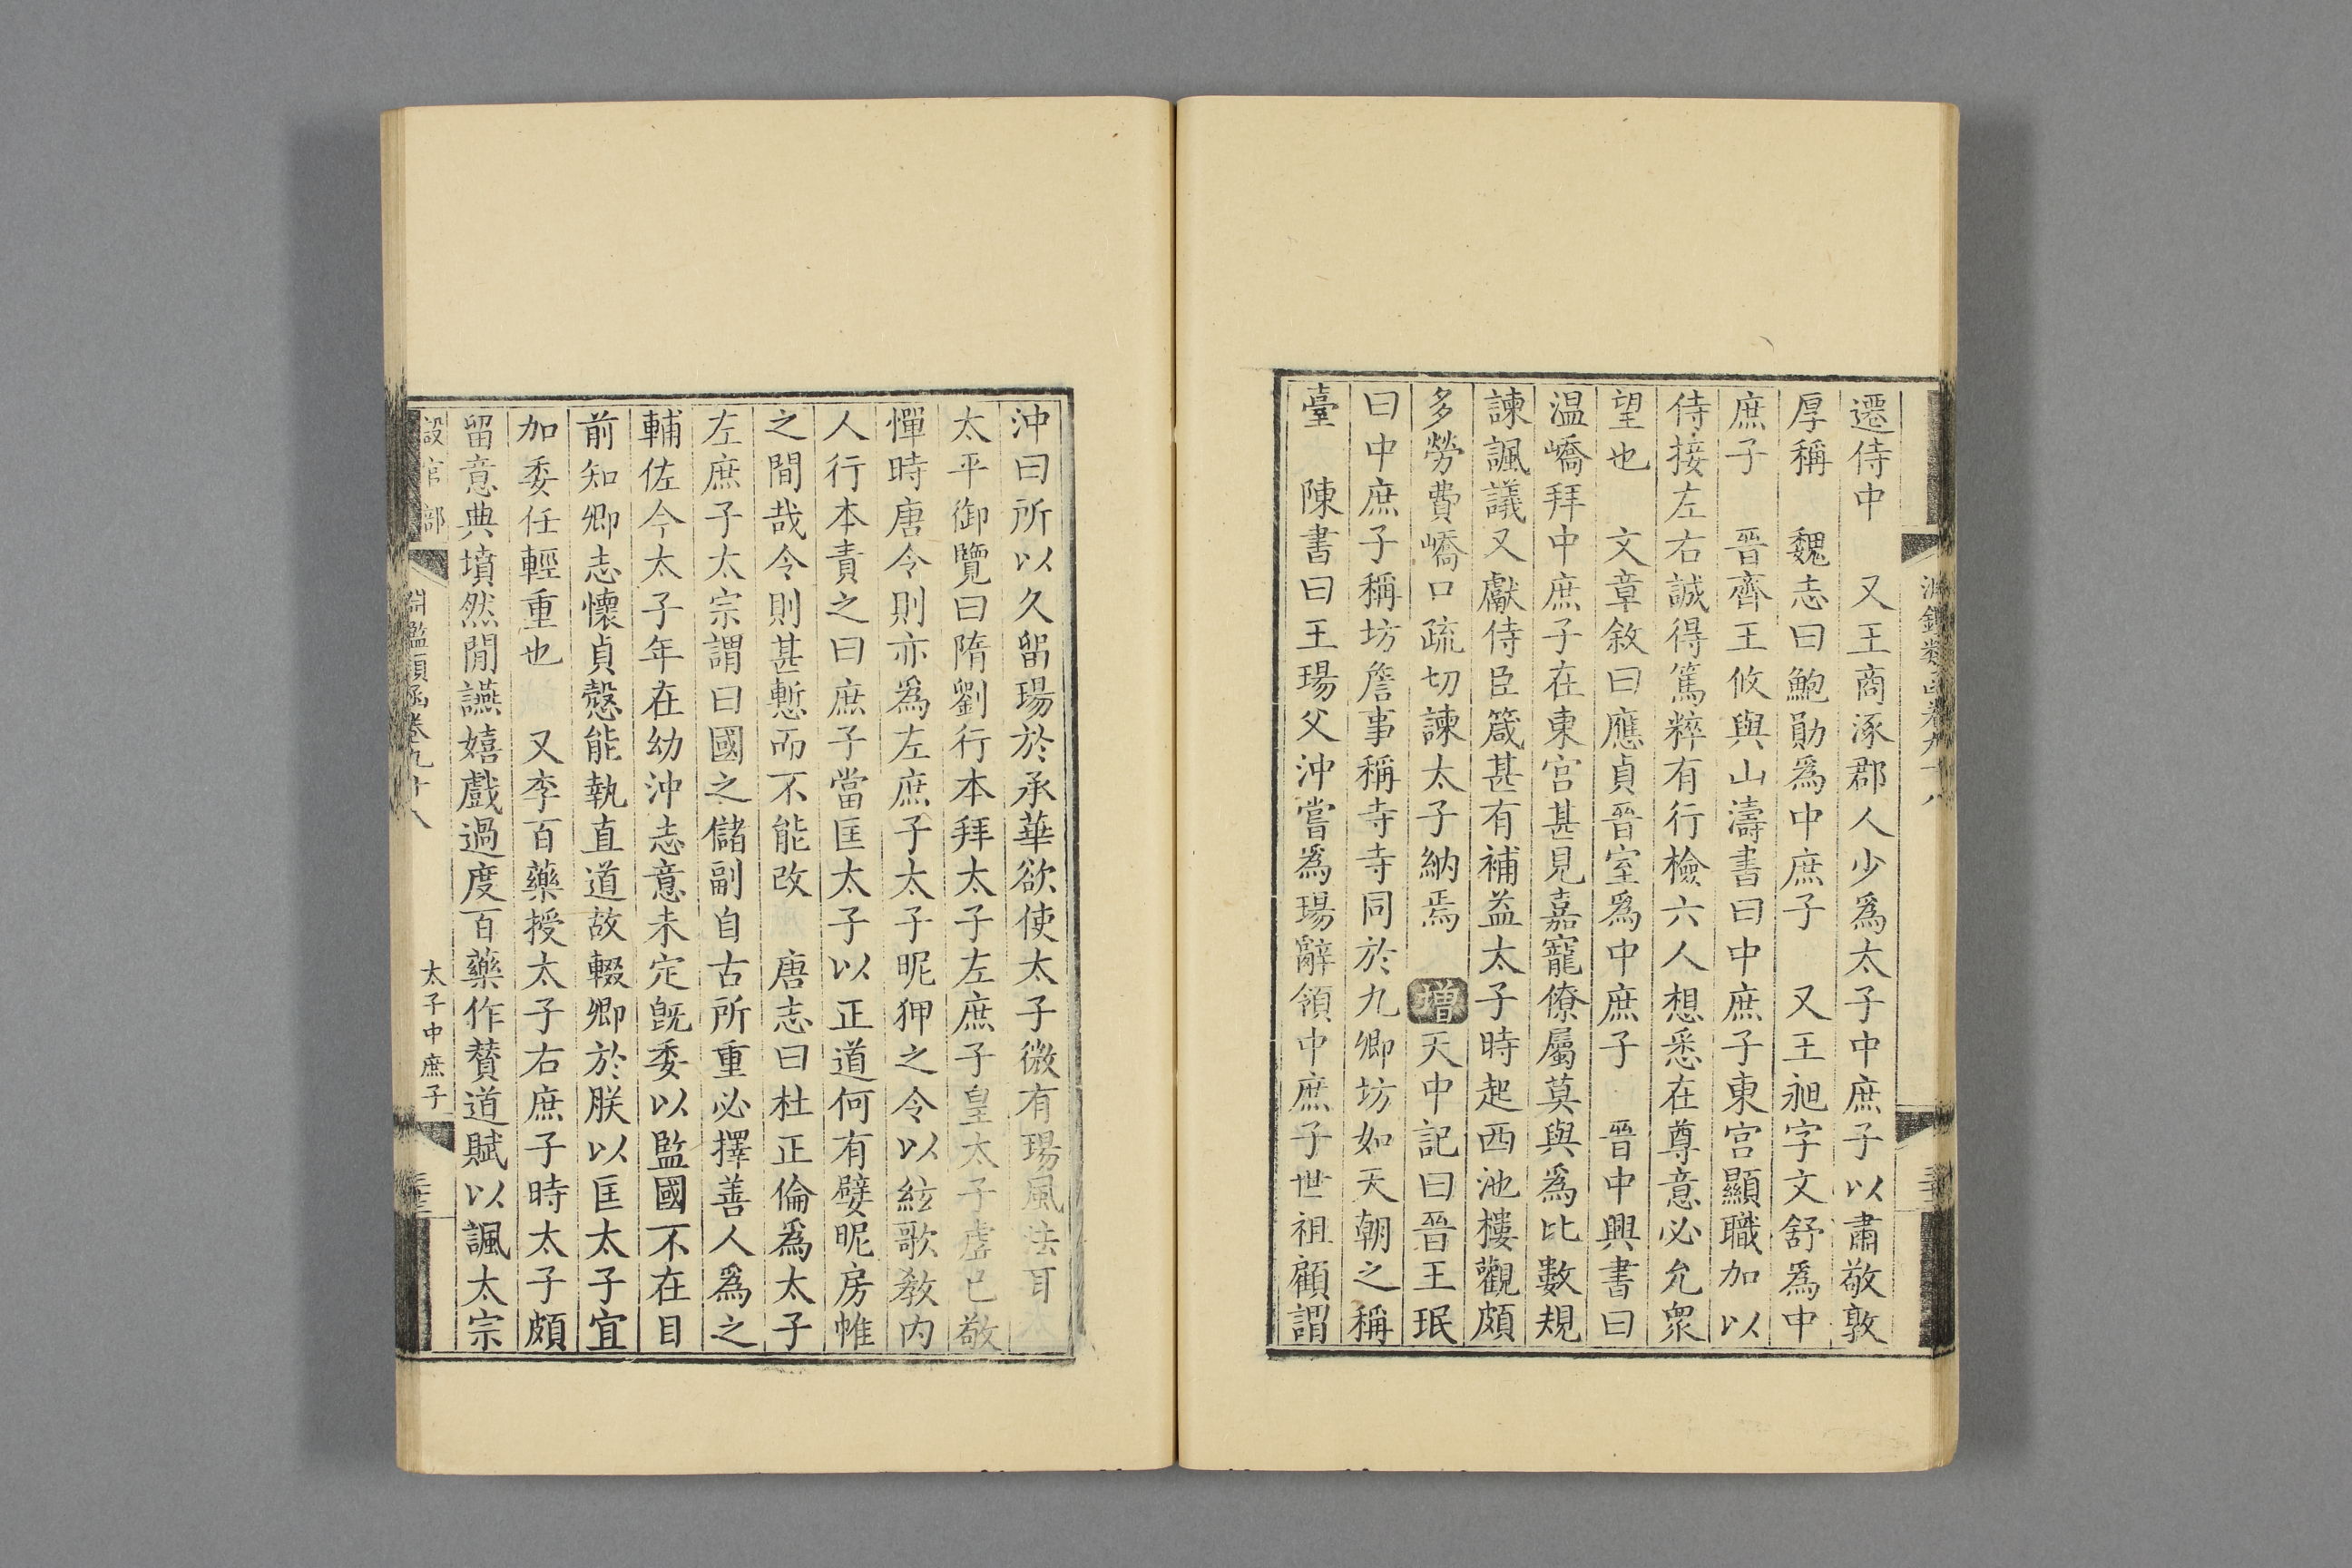 遷侍中　又王商涿郡人少爲太子中庶子以肅敬敦
厚稱　魏志曰鮑勛爲中庶子　又王昶字文舒爲中
庶子　晉齊王攸與山濤書曰中庶子東宮顯職加以
侍接左右誠得篤粹有行檢六人想悉在尊意必允衆
望也　文章敘曰應貞晉室爲中庶子　晉中興書曰
温嶠拜中庶子在東宮甚見嘉寵僚屬莫與爲比數規
諫諷議又獻侍臣箴甚有補益太子時起西池樓觀頗
多勞費嶠口疏切諫太子納焉　增天中記曰晉王珉
曰中庶子稱坊詹事稱寺寺同於九卿坊如天朝之稱
臺　陳書曰王瑒父沖嘗爲瑒辭領中庶子世祖顧謂
沖曰所以久留瑒於承華欲使太子微有瑒風法耳
太平御覽曰隋劉行本拜太子左庶子皇太子虛已敬
憚時唐令則亦爲左庶子太子昵狎之令以絃歌敎内
人行本責之曰庶子當匡太子以正道何有嬖昵房帷
之間哉令則甚慙而不能改　唐志曰杜正倫爲太子
左庶子太宗謂曰國之儲副自古所重必擇善人爲之
輔佐今太子年在幼沖志意未定旣委以監國不在目
前知卿志懷貞慤能執直道故輟卿於朕以匡太子宜
加委任輕重也　又李百藥授太子右庶子時太子頗
留意典墳然閒讌嬉戲過度百藥作贊道賦以諷太宗
設官部　淵鑑類函卷九十八　太子中庶子